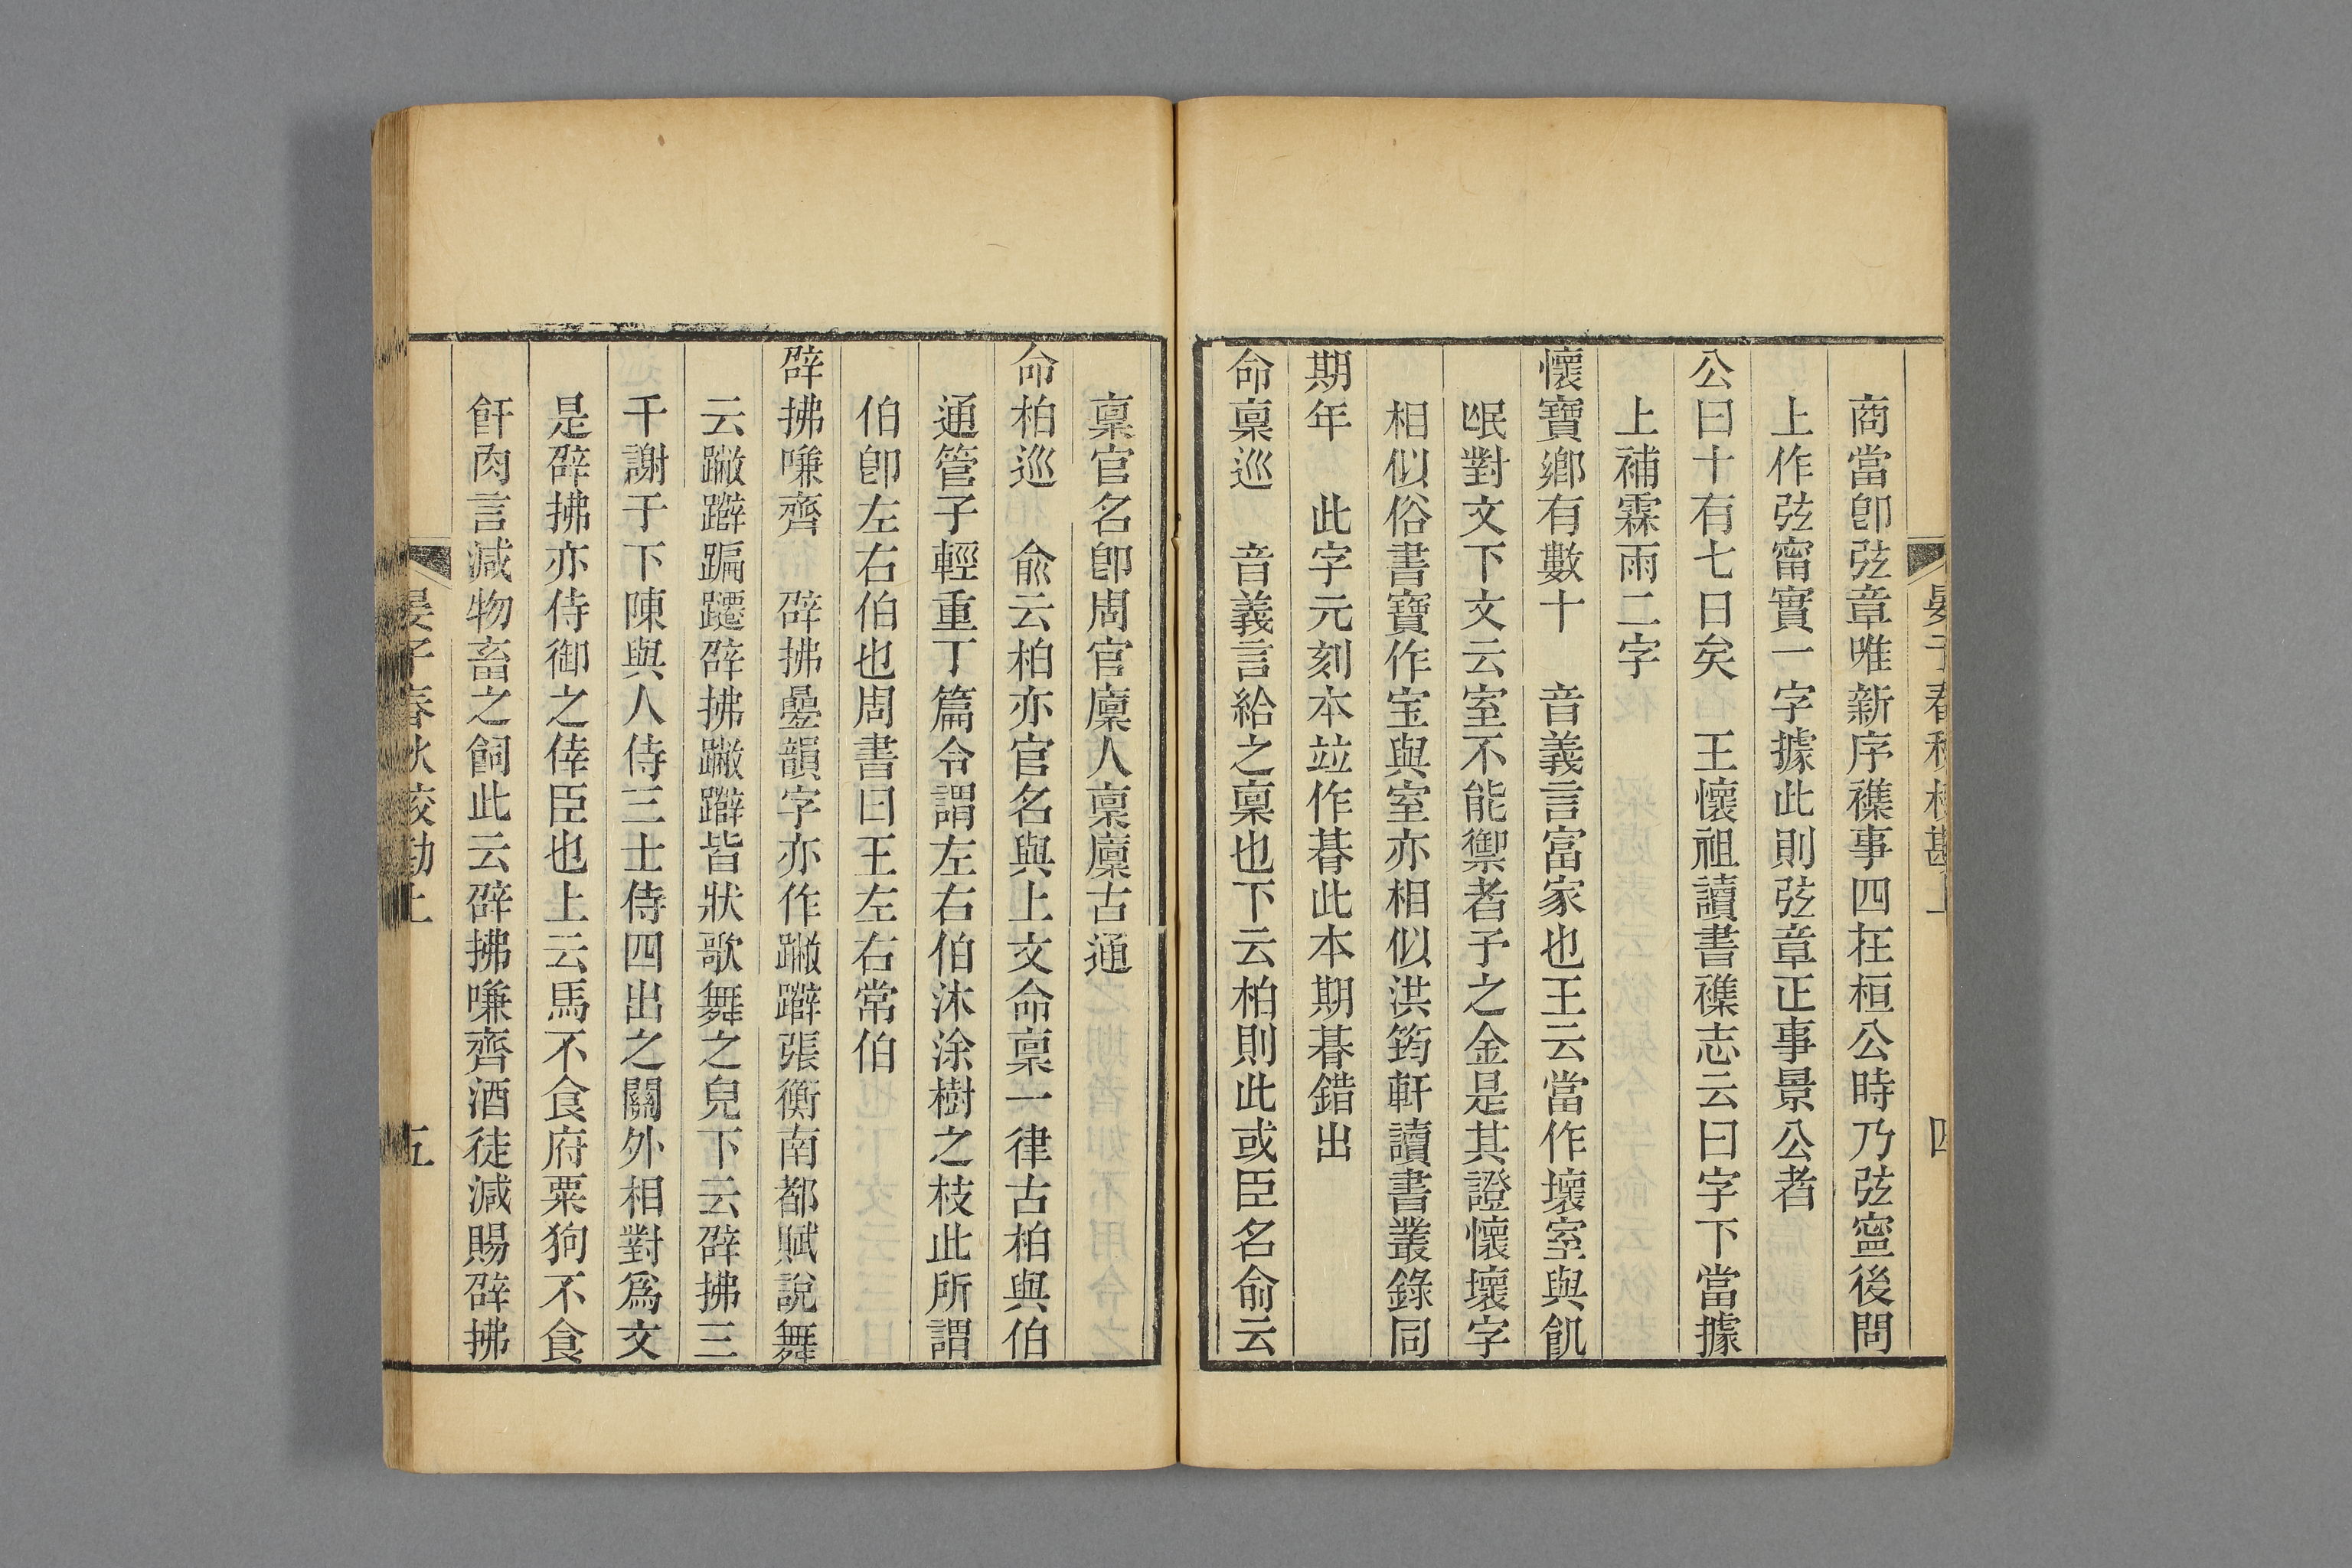 晏子春秋校勘上 四
商當卽弦章唯新序襍事四在桓公時乃弦寧後問
上作弦甯實一字據此則弦章正事景公者
公曰十有七日矣 王懷祖讀書襍志云曰字下當據
上補霖雨二字
懷寶鄉有數十 音義言富家也王云當作壞室與飢
氓對文下文云室不能禦者予之金是其證懷壞字
相似俗書寶作宝與室亦相似洪筠軒讀書叢錄同
期年 此字元刻本竝作朞此本期朞錯出
命稟巡 音義言給之稟也下云柏則此或臣名俞云
稟官名卽周官廩人稟廩古通
命柏巡 俞云柏亦官名與上文命稟一律古柏與伯
通管子輕重丁篇令謂左右伯沐涂樹之枝此所謂
伯卽左右伯也周書曰王左右常伯
辟拂嗛齊 辟拂疊韻字亦作蹩躃張衡南都賦說舞
云蹩躃蹁躚辟拂蹩躃皆狀歌舞之皃下云辟拂三
千謝于下陳與人侍三士侍四出之關外相對爲文
是辟拂亦侍御之倖臣也上云馬不食府粟狗不食
飦肉言減物畜之飼此云辟拂嗛齊酒徒減賜辟拂
晏子春秋校勘上 五